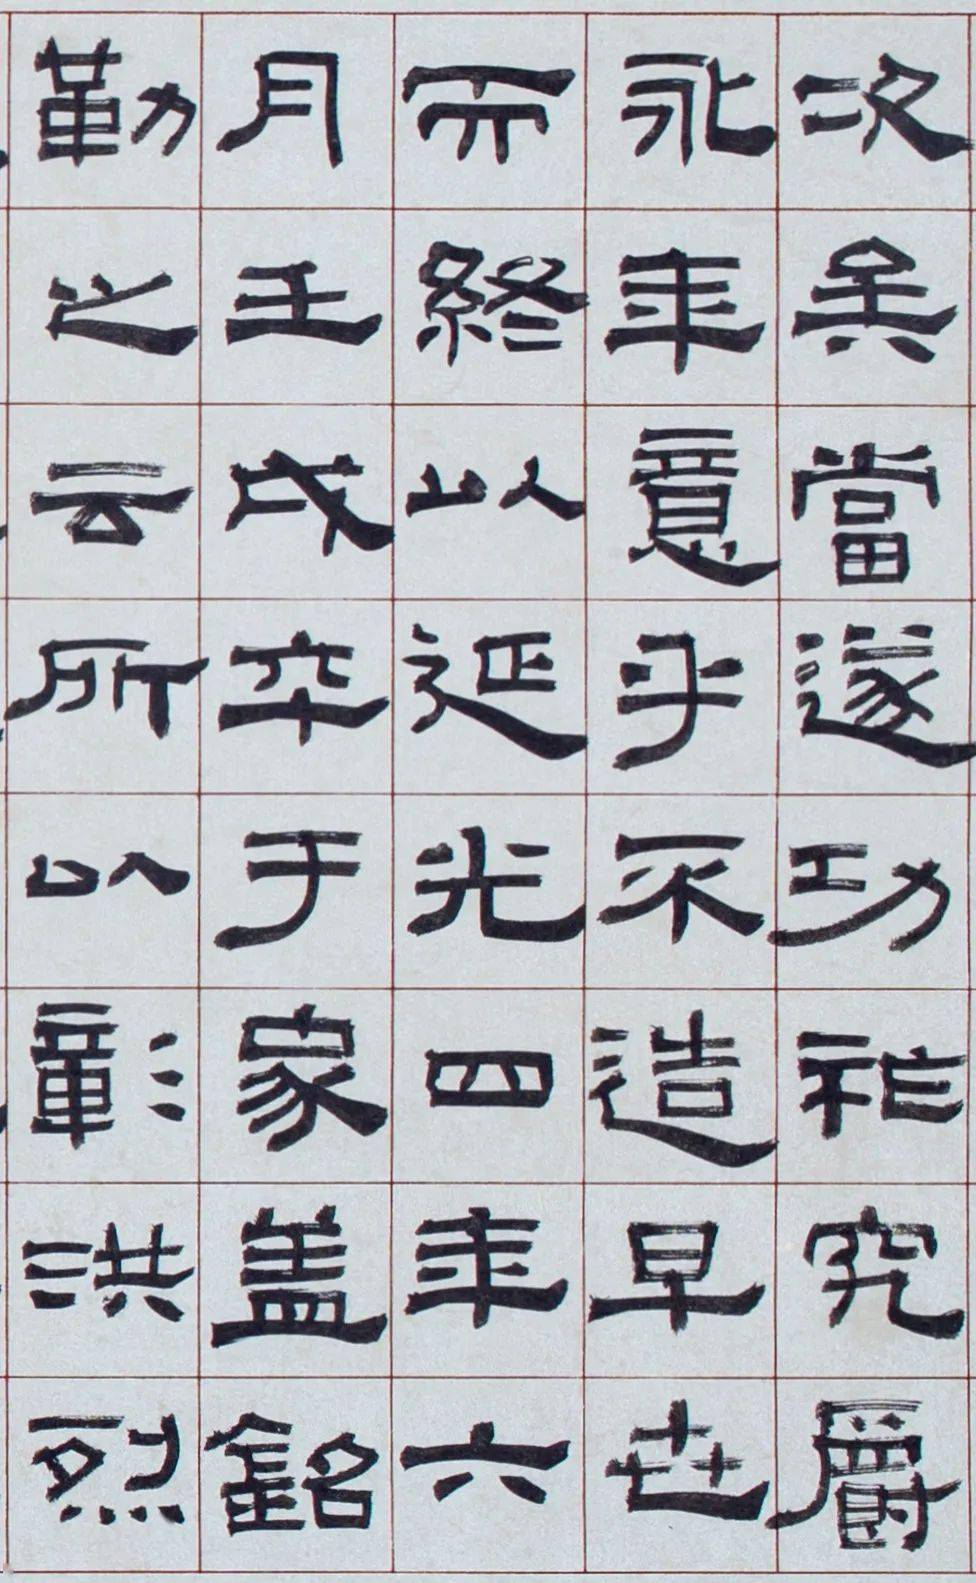 次矣當遂功祀究爵
永年意乎不造早世
而終以延光四年六
月壬戌卒于家盖銘
勒之云所以彰洪烈